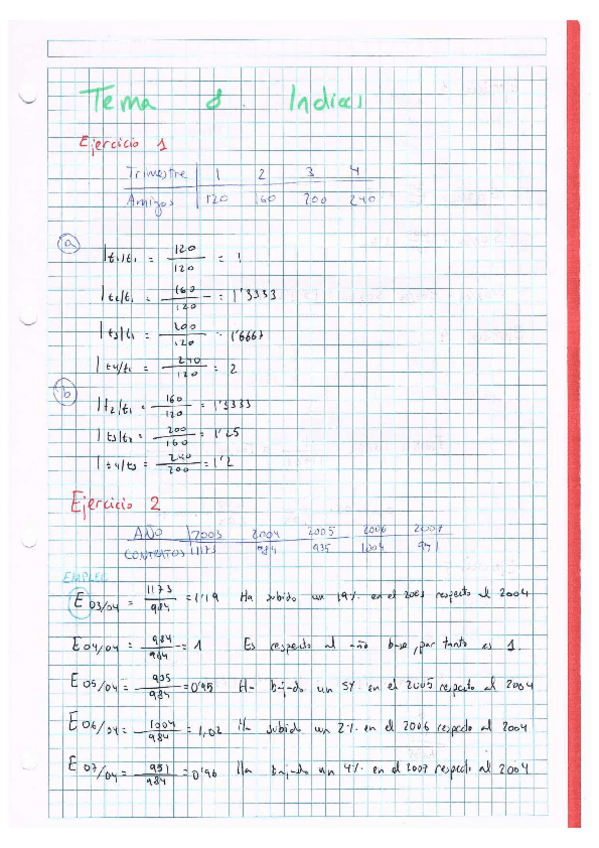 Tema 8 Indices
Ejercicio 1
Trimestre 1 2 3 4
Amigos 120 160 200 240
a
I t1/t1 = 120/120 = 1
I t2/t1 = 160/120 = 1'3333
I t3/t1 = 200/120 = 1'6667
I t4/t1 = 240/120 = 2
b
I t2/t1 = 160/120 = 1'3333
I t3/t2 = 200/160 = 1'25
I t4/t3 = 240/200 = 1'2
Ejercicio 2
AÑO 2003 2004 2005 2006 2007
CONTRATOS 1173 984 935 1004 951
EMPLEO
E 03/04 = 1173/984 = 1'19 Ha subido un 19% en el 2003 respecto al 2004
E 04/04 = 984/984 = 1 Es respecto al año base, por tanto es 1.
E 05/04 = 935/984 = 0'95 Ha bajado un 5% en el 2005 respecto al 2004
E 06/04 = 1004/984 = 1,02 Ha subido un 2% en el 2006 respecto al 2004
E 07/04 = 951/984 = 0'96 Ha bajado un 4% en el 2007 respecto al 2004